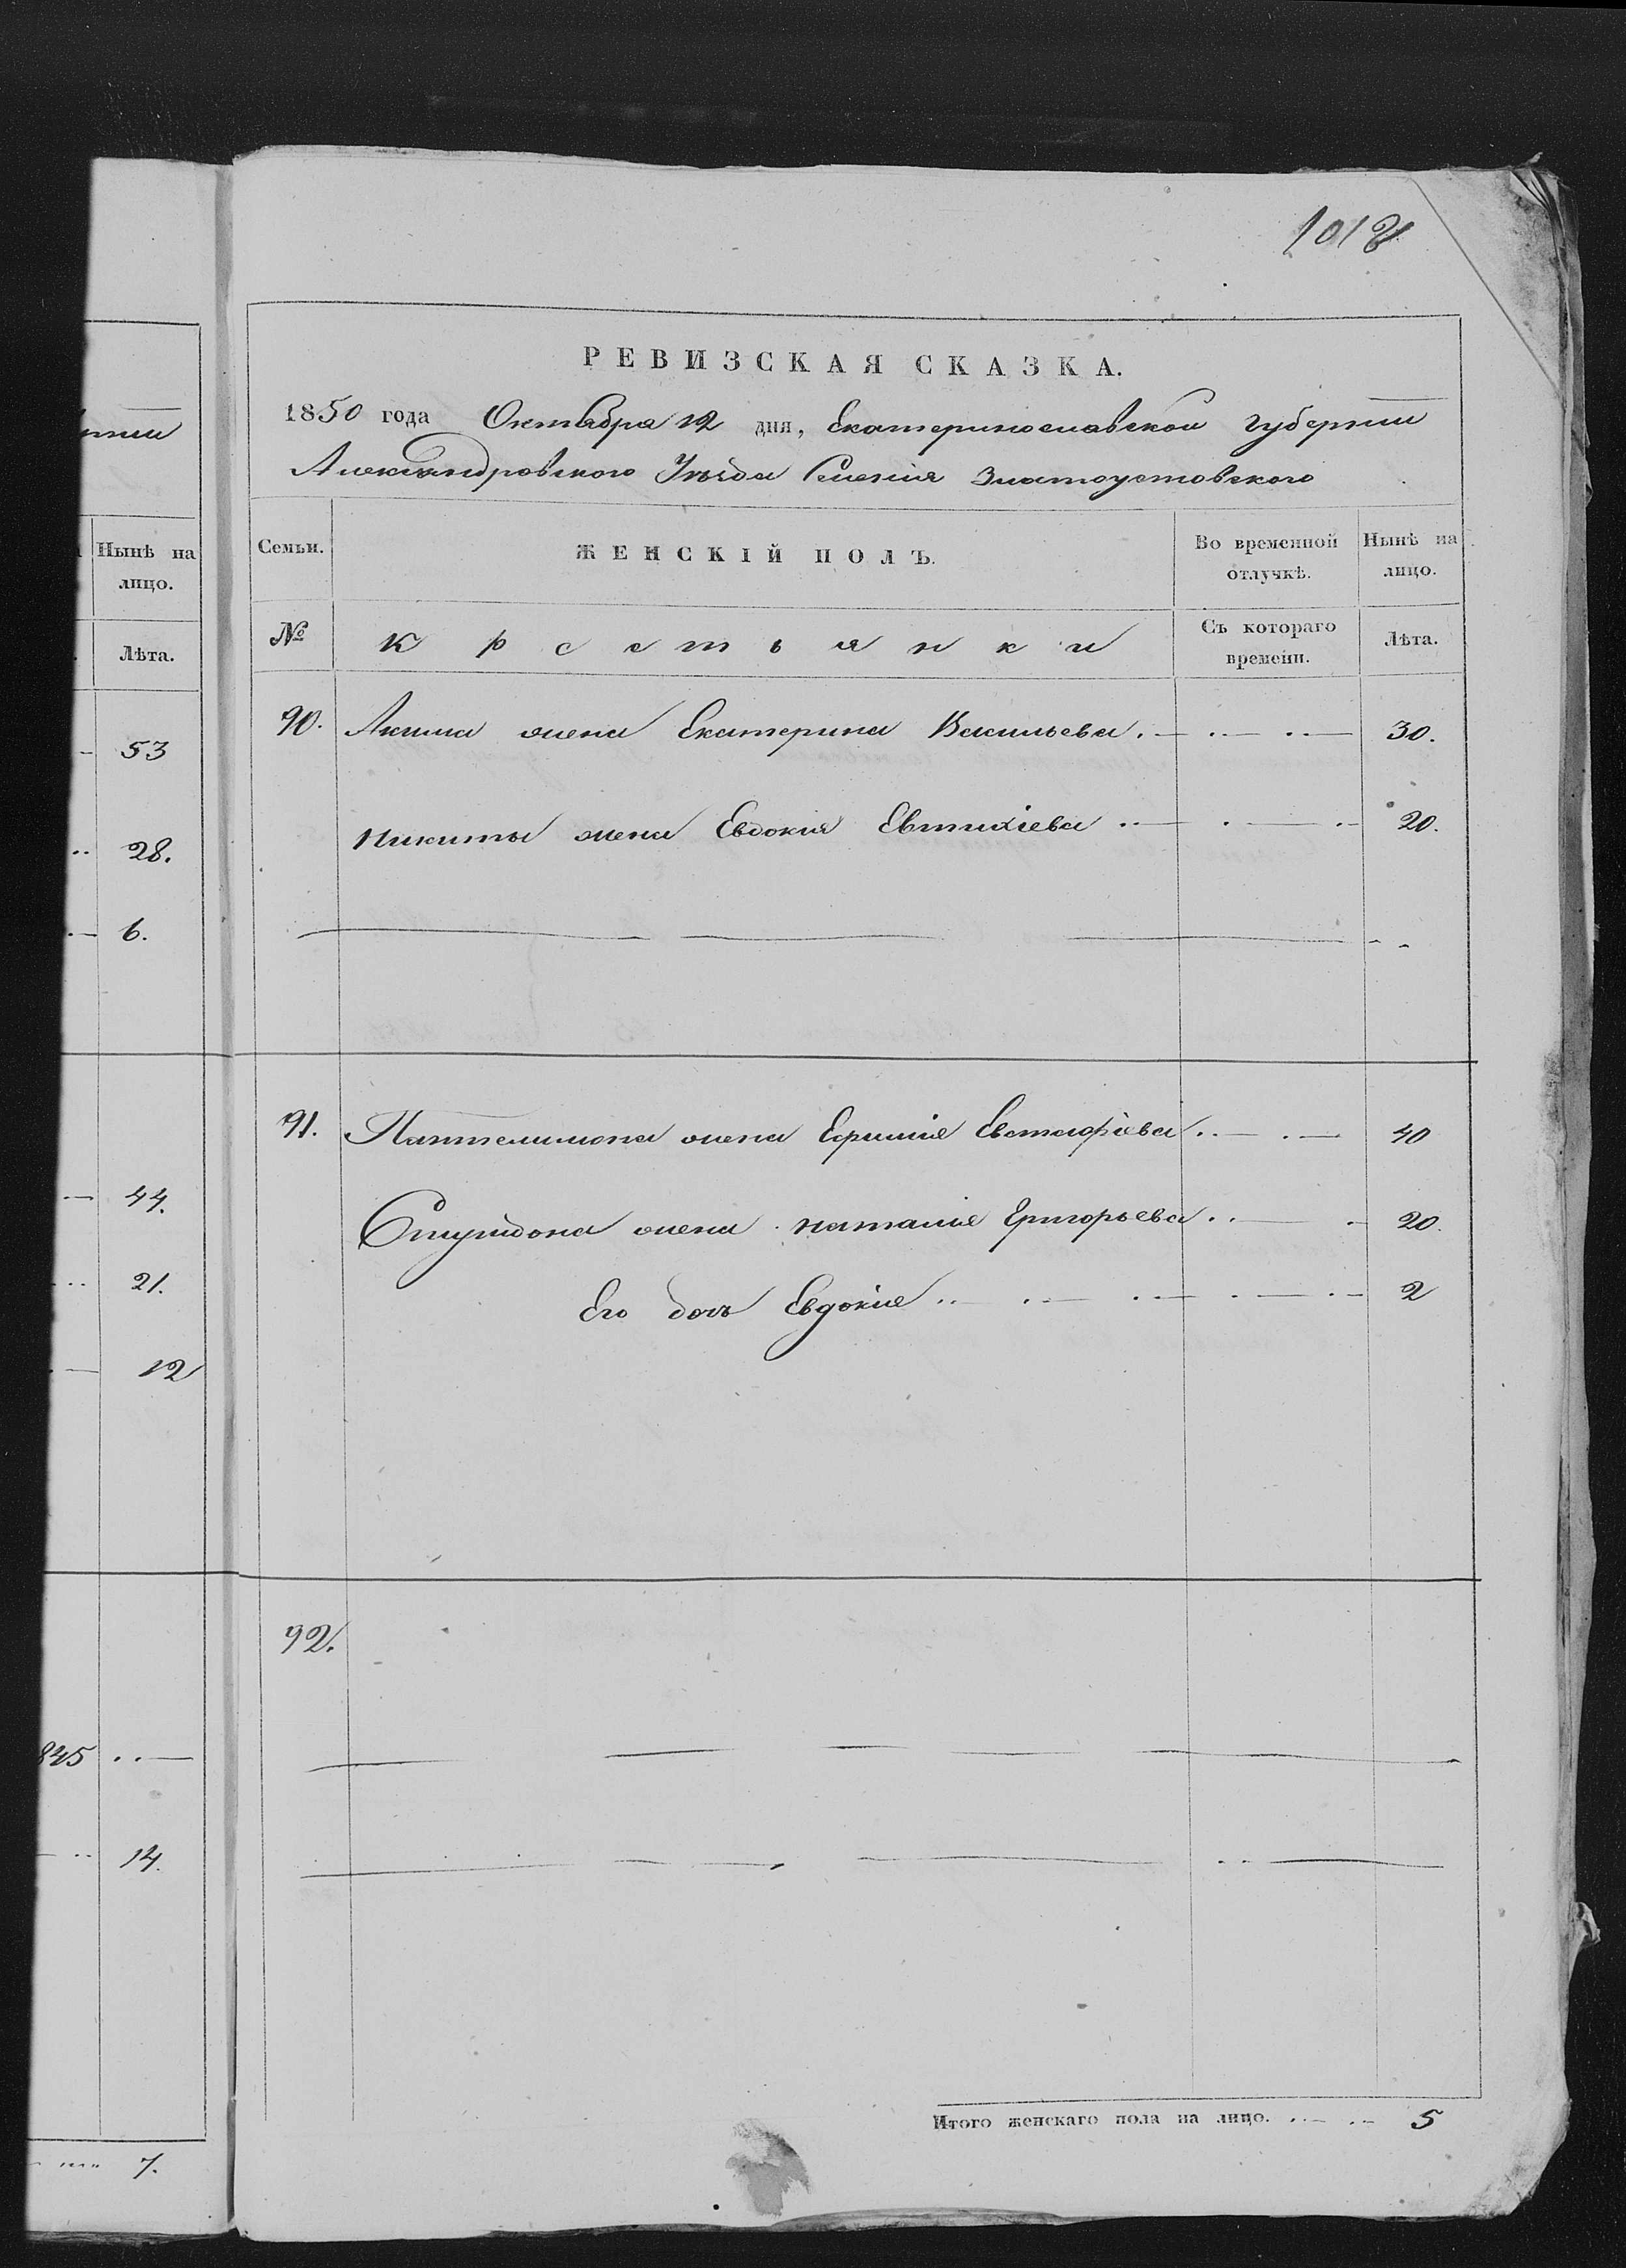 1012
РЕВИЗСКАЯ СКАЗКА.
1850 года Октября 12 дня, Екатеринославской губернии
Александровского Уѣзда Селенія Златоустовского
Семьи. ЖЕНСКІЙ ПОЛЪ. Во временной отлучкѣ. Нынѣ на лицо.
№ Крестьянки Съ котораго времени. Лѣта.
90. Акима жена Екатерина Васильева 30.
Никиты жена Евдокия Евтихіева 20.
91. Пантелимона жена Евстафіева 40
Спиридона жена Наталия Григорьева 20.
Его дочь Евдокия 2
92.
Итого женскаго пола на лицо. 5
рніи
Нынѣ на
лицо.
Лѣта.
53
28.
6.
44.
21.
12
845
14.
7.